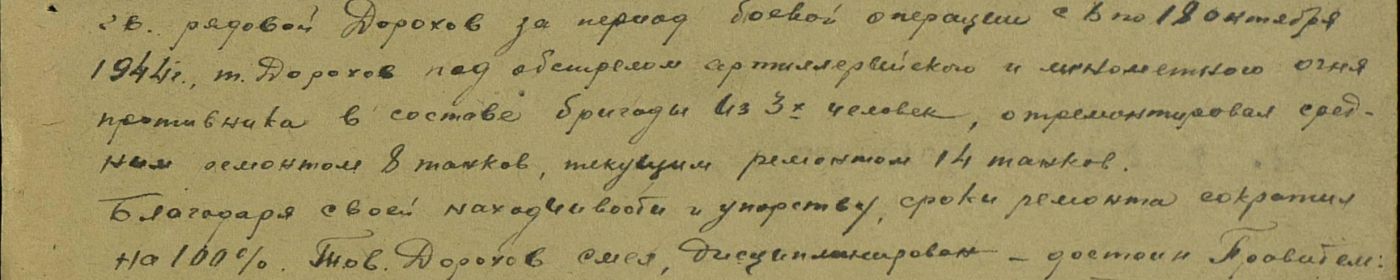 Гв. рядовой Дорохов за период боевой операции с 6 по 18 октября
1944 г., т. Дорохов под обстрелом артиллерийского и минометного огня
противника в составе бригады из 3х человек, отремонтировал сред-
ним ремонтом 8 танков, текущим ремонтом 14 танков.
Благодаря своей находчивости и упорству, сроки ремонта сократил
на 100%. Тов. Дорохов смел, дисциплинирован – достоин Правител: